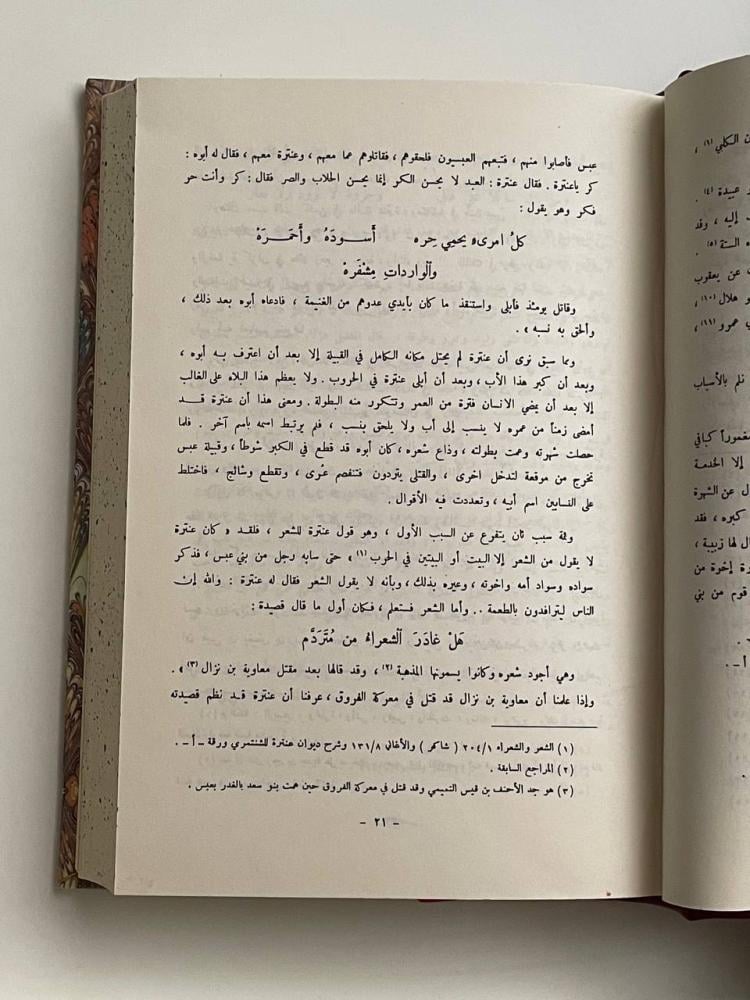 عبس فأصابوا منهم ، فتبعهم العبسيون فلحقوهم ، فقاتلوهم عما معهم ، وعنترة معهم ، فقال له أبوه :
كر ياعنترة . فقال عنترة : العبد لا يحسن الكر إنما يحسن الحلاب والصر فقال : كر وأنت حر
فكر وهو يقول :
كلُّ امرىء يحمي حِره أَسودَهُ وأَحمَرَهْ
وآلواردات مِشْفَرهْ
وقاتل يومئذ فأبلى واستنقذ ما كان بأيدي عدوهم من الغنيمة ، فادعاه أبوه بعد ذلك ،
وألحق به نسبه » .
ومما سبق نرى أن عنترة لم يحتل مكانه الكامل في القبيلة إلا بعد أن اعترف به أبوه ،
وبعد أن كبر هذا الأب ، وبعد أن أبلى عنترة في الحروب . ولا يعظم هذا البلاء على الغالب
إلا بعد أن يمضي الانسان فترة من العمر وتتكرر منه البطولة . ومعنى هذا أن عنترة قد
أمضى زمناً من عمره لا ينسب إلى أب ولا يلحق بنسب ، فلم يرتبط اسمه باسم آخر . فلما
حصلت شهرته وعمت بطولته ، وذاع شعره ، كان أبوه قد قطع في الكبر شوطاً ، وقبيلة عبس
تخرج من موقعة لتدخل اخرى ، والقتلى يتردون فتنفصم عُرى ، وتقطع وشائج ، فاختلط
على النسابين اسم أبيه ، وتعددت فيه الأقوال .
وثمة سبب ثان يتفرع عن السبب الأول ، وهو قول عنترة للشعر ، فلقد « كان عنترة
لا يقول من الشعر إلا البيت أو البيتين في الحرب (١) ، حتى سابه رجل من بني عبس ، فذكر
سواده وسواد أمه واخوته ، وعيره بذلك ، وبأنه لا يقول الشعر فقال له عنترة : والله إن
الناس ليترافدون بالطعمة .. وأما الشعر فستعلم ، فكان أول ما قال قصيدة :
هَلْ غادَرَ آلشعراءُ من مُتَردَّم
وهي أجود شعره وكانوا يسمونها المذهبة (٢) ، وقد قالها بعد مقتل معاوية بن نزال (٣) » .
وإذا علمنا أن معاوية بن نزال قد قتل في معركة الفروق ، عرفنا أن عنترة قد نظم قصيدته
(١) الشعر والشعراء ٢٠٤/١ ( شاكر ) والأغاني ١٣١/٨ وشرح ديوان عنترة للشنتمري ورقة – أ – .
(٢) المراجع السابقة .
(٣) هو جد الأحنف بن قيس التميمي وقد قتل في معركة الفروق حين همت بنو سعد بالغدر بعبس .
– ٢١ –
ن الكلبي (٦) ،
و عبيدة (٤) .
ب إليه ، وقد
ه الستة (٥) .
عن يعقوب
و هلال (١٠) ،
ي عمرو (١١) ،
نلم بالأسباب
مغموراً كباقي
إلا الخدمة
ل عن الشهرة
كبره ، فقد
ال لها زبيبة ،
رة إخوة من
قوم من بني
أ – .